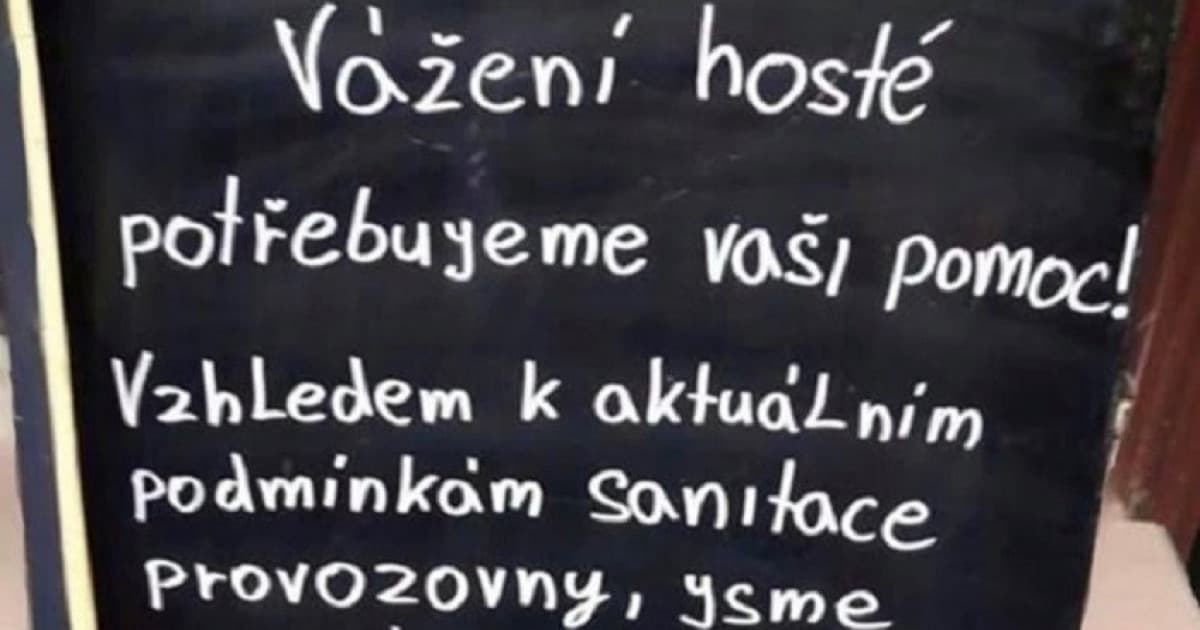 Vážení hosté
potřebuyeme vaši pomoc!
Vzhledem k aktuálním
podmínkám sanitace
provozovny, ysme